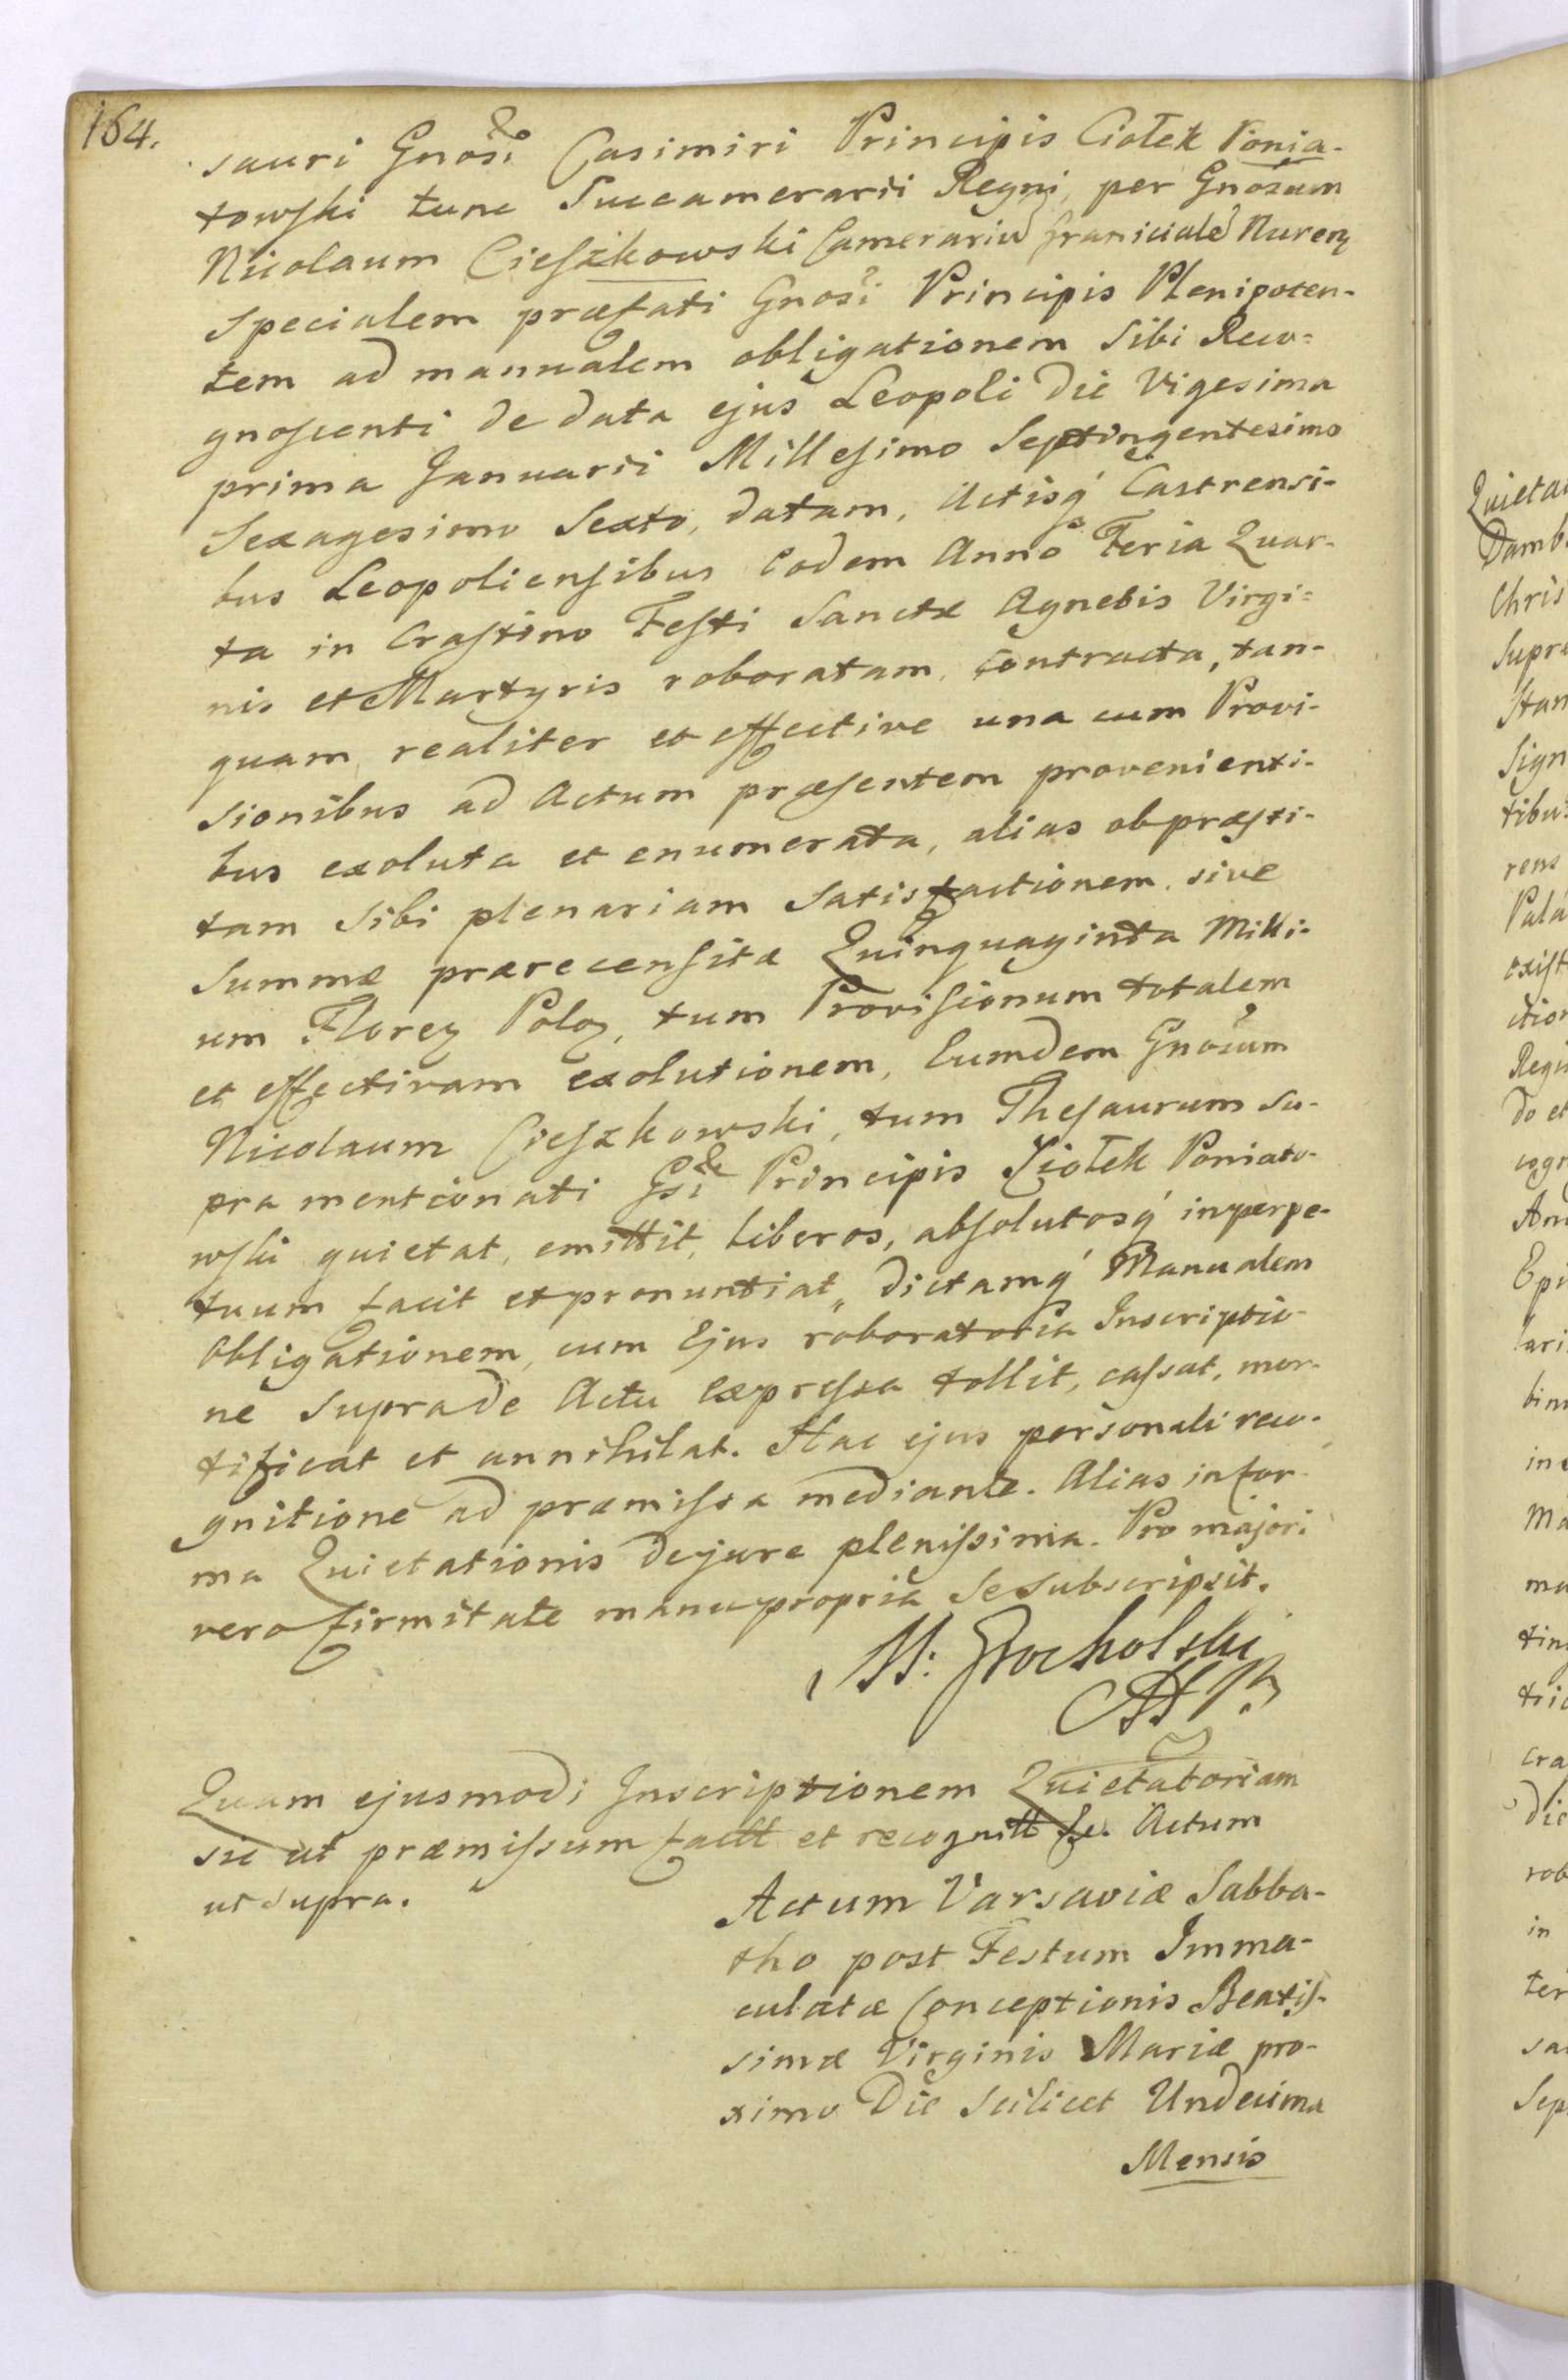 164.
sauri Gnosi Casimiri Principis Ciołek Ponia-
towski tunc Succamerarii Regni, per Gnosum
Nicolaum Cieszkowski Camerariu graniciale Nureng
specialem præfati Gnosi Principis Plenipoten-
tem ad manualem obligationem Sibi Reco-
gnoscenti de data ejus Leopoli Die Vigesima
prima Januarii Millesimo Septingentesimo
Sexagesimo Sexto, datam, Actisq́ Castrensi-
bus Leopoliensibus Eodem Anno Feria Quar-
ta in Crastino Festi Sanctæ Agnetis Virgi-
nis et Martyris roboratam, contracta, tan-
quam realiter et effective una cum Provi-
sionibus ad Actum præsentem provenienti-
bus exoluta et enumerata, alias ob præsti-
tam Sibi plenariam Satisfactionem, sive
Summæ prærecensitæ Quinquaginta Milli-
um Floreg Polog, tum Provisionum totalem
et effectivam exolutionem, Eumdem Gnosum
Nicolaum Cieszkowski, tum Thesaurum su-
pra mentionati Gsi Principis Ciołek Poniato-
wski quietat, emittit, liberos, absolutosq́ in perpe-
tuum facit et pronuntiat, dictamq́ Manualem
Obligationem, cum Ejus roboratoria Inscriptio-
ne supra de Actu expressa tollit, cassat, mor-
tificat et annihilat. Hac ejus personali reco-
gnitione ad præmissa mediante. Alias in for-
ma Quietationis de jure plenissima. Pro majori
vero firmitate manu propria Se subscripsit.
M: Grocholski
Quam ejusmodi Inscriptionem Quietatoriam
sic ut præmissum facitt et recognitt se. Actum
ut supra.
Actum Varsaviæ Sabba-
tho post Festum Imma-
culatæ Conceptionis Beatis-
simæ Virginis Mariæ pro-
ximo Die scilicet Undecima
Mensis